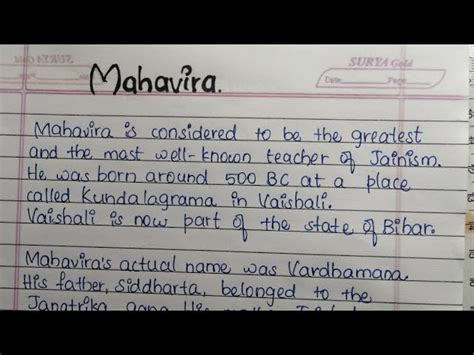 SURYA Gold
Date Page
Mahavira.
Mahavira is considered to be the greatest
and the mast well-known teacher of Jainism.
He was born around 500 BC at a place
called Kundalagrama in Vaishali.
Vaishali is now part of the state of Bihar.
Mahavira's actual name was Vardhamana.
His father, Siddharta, belonged to the